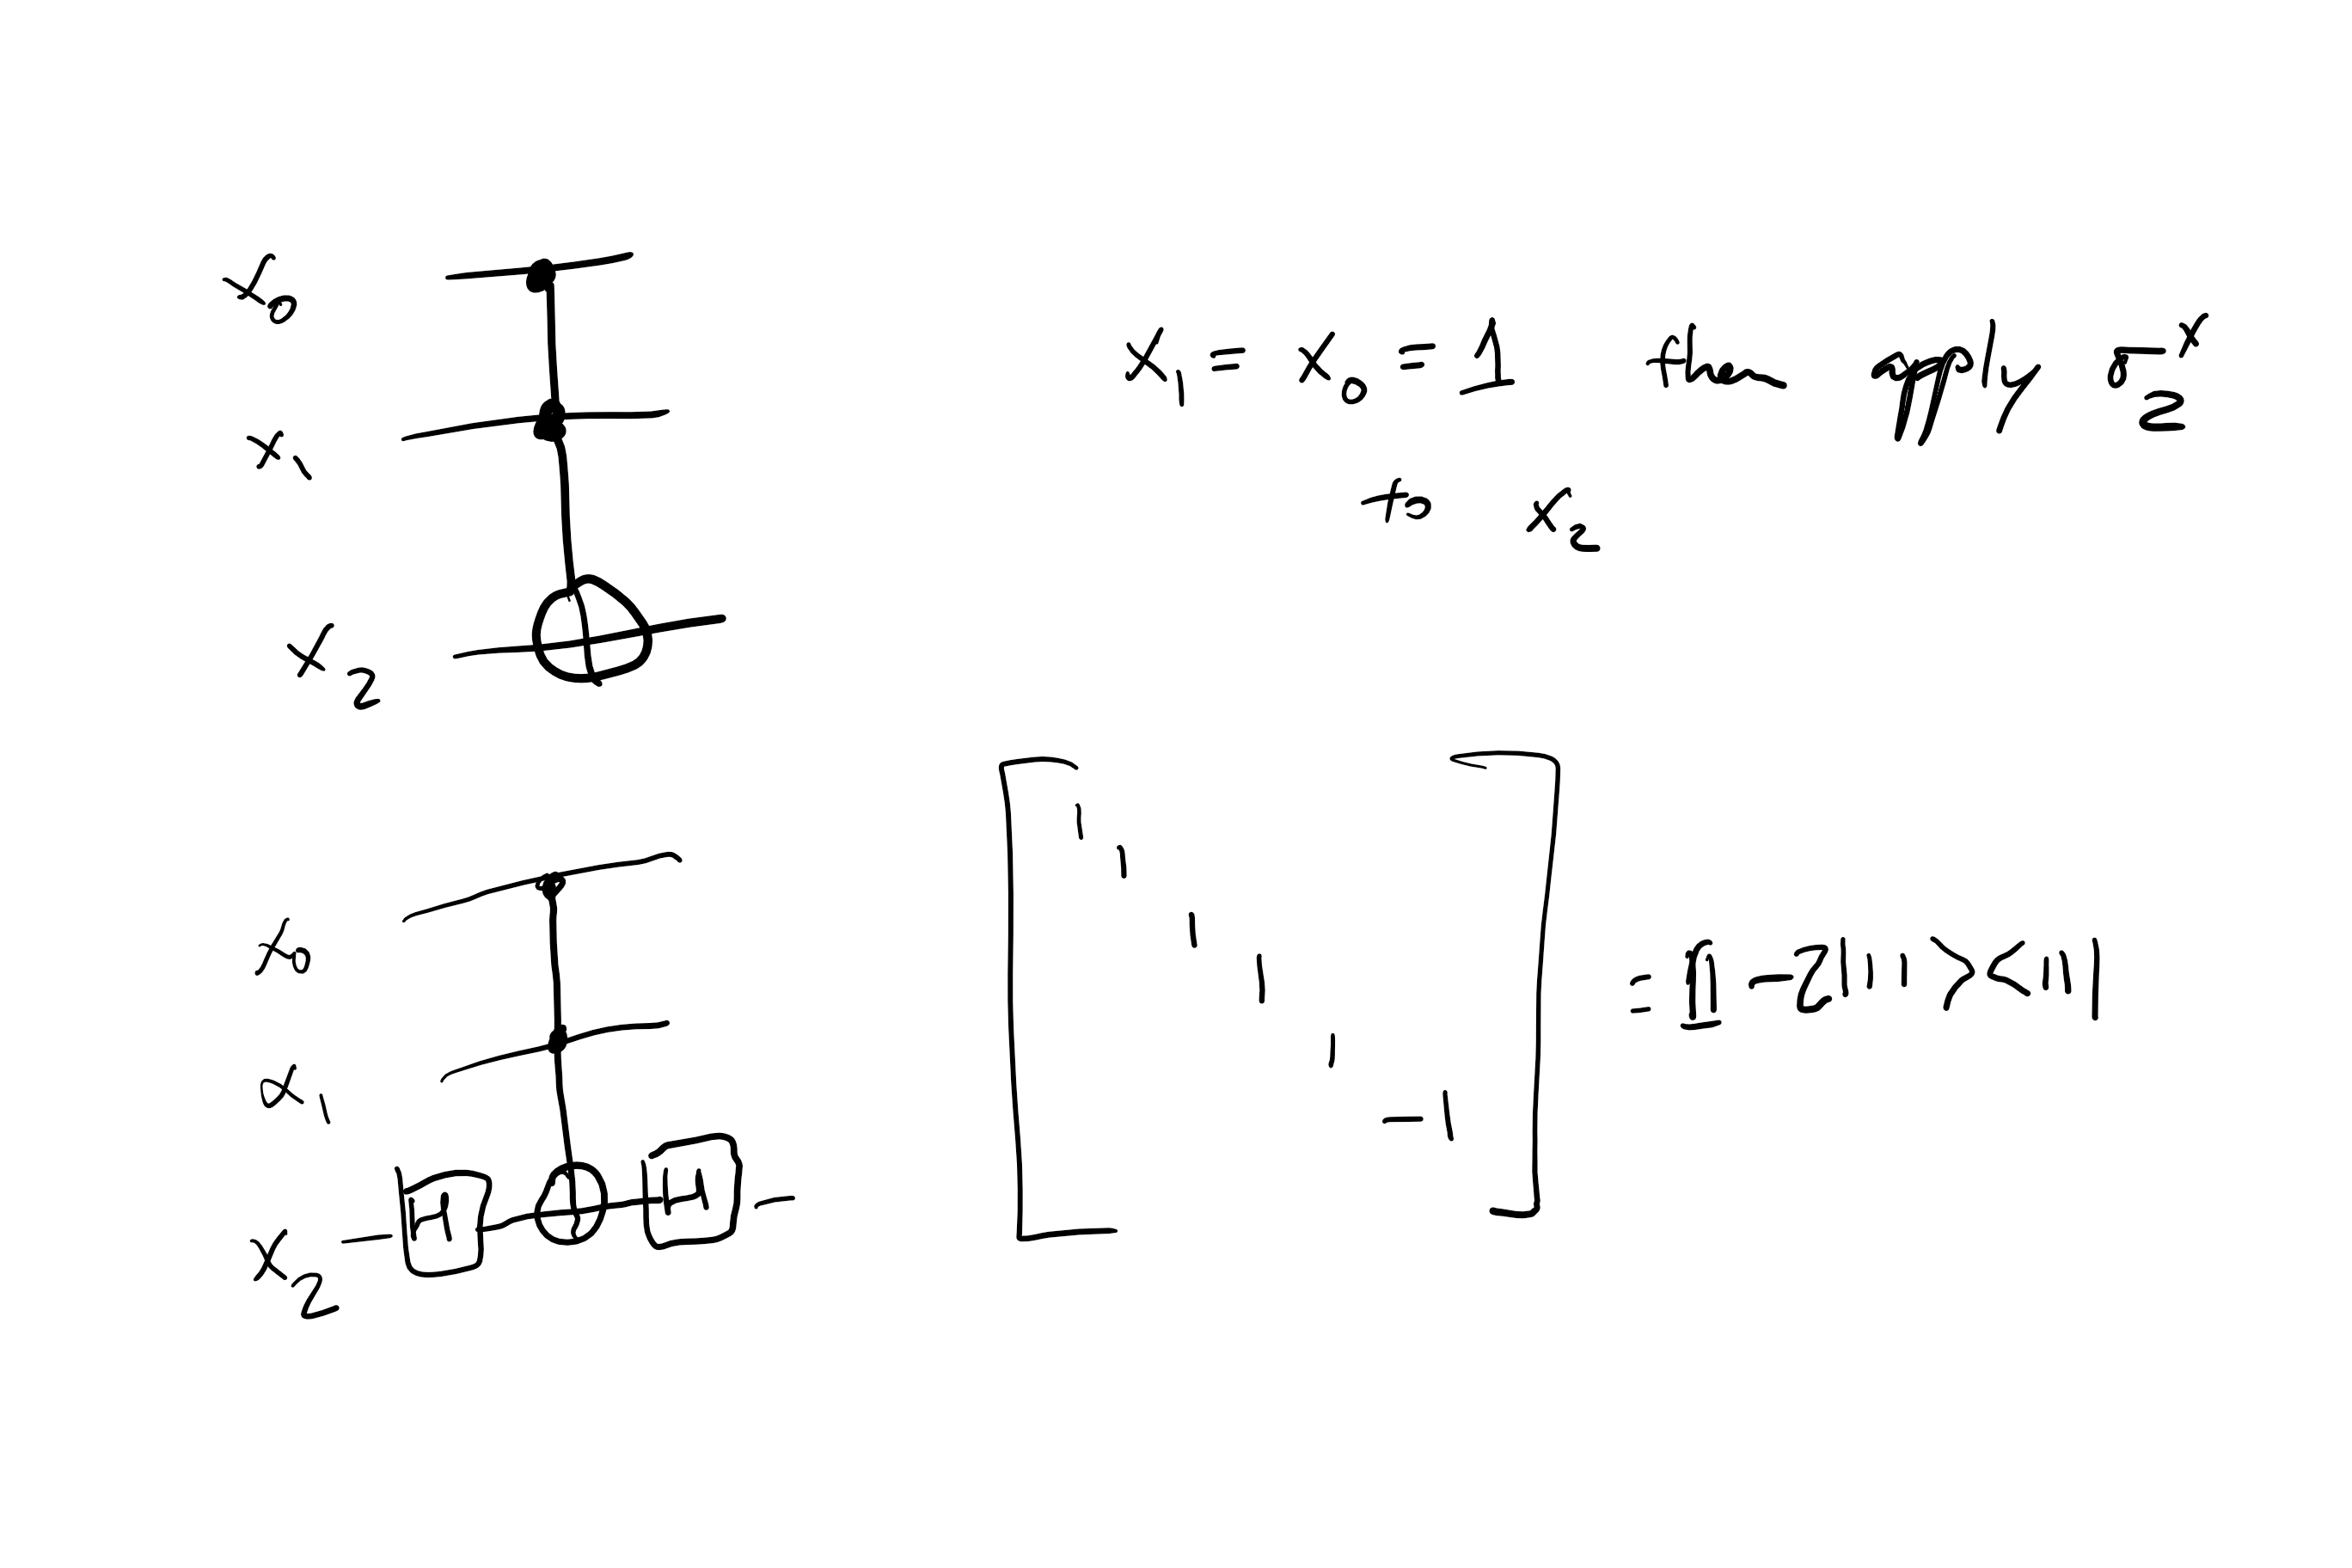 x₀
x₁
x₂
x₁ = x₀ = 1 then apply σ₂ˣ
to x₂
x₀
x₁
x₂ H H
[ 1 1 1 1 1 -1 ] = 𝟙 - 2|11><11|